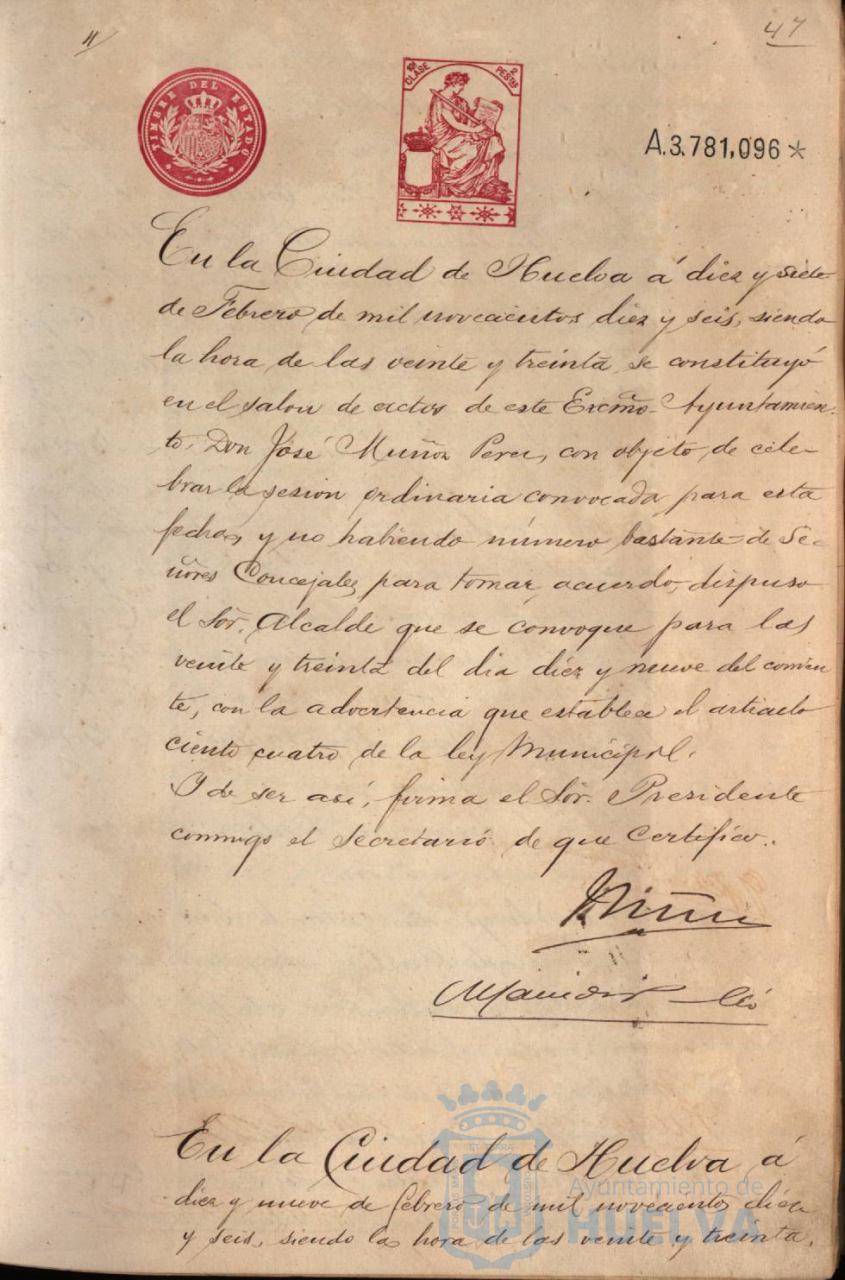 47
TIMBRE DEL ESTADO
10ª CLASE 2 PESTAS
A.3.781,096*
En la Ciudad de Huelva á diez y siete
de Febrero de mil novecientos diez y seis, siendo
la hora de las veinte y treinta, se constituyó
en el salon de actos de este Excmo. Ayuntamien-
to, Don José Muñoz Perez, con objeto de cele-
brar la sesion ordinaria convocada para esta
fecha, y no habiendo número bastante de Se-
ñores Concejales para tomar acuerdo, dispuso
el Sor. Alcalde que se convoque para las
veinte y treinta del dia diez y nueve del corrien-
te, con la advertencia que establece el articulo
ciento cuatro de la ley Municipal.
Y de ser así, firma el Sor. Presidente
conmigo el Secretario de que Certifico.
En la Ciudad de Huelva á
diez y nueve de febrero de mil novecientos diez
y seis, siendo la hora de las veinte y treinta,
Ayuntamiento de
HUELVA